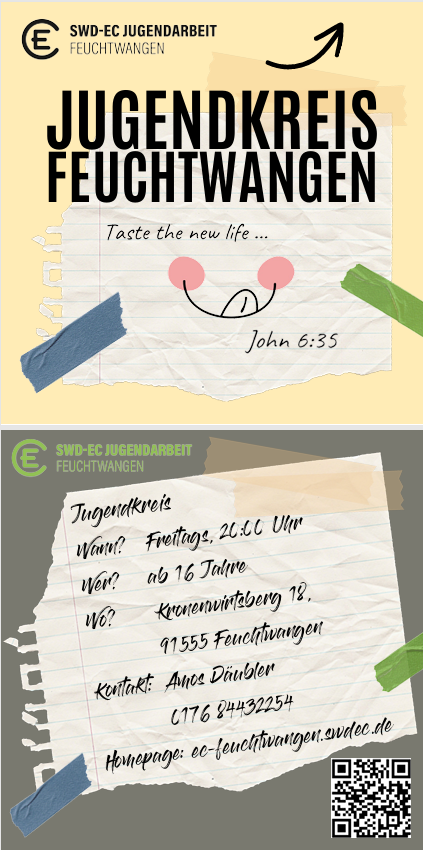 SWD-EC JUGENDARBEIT
FEUCHTWANGEN
JUGENDKREIS
FEUCHTWANGEN
Taste the new life ...
John 6:35
SWD-EC JUGENDARBEIT
FEUCHTWANGEN
Jugendkreis
Wann? Freitags, 20:00 Uhr
Wer? ab 16 Jahre
Wo? Kronenwirtsberg 18,
91555 Feuchtwangen
Kontakt: Amos Däubler
0176 84432254
Homepage: ec-feuchtwangen.swdec.de